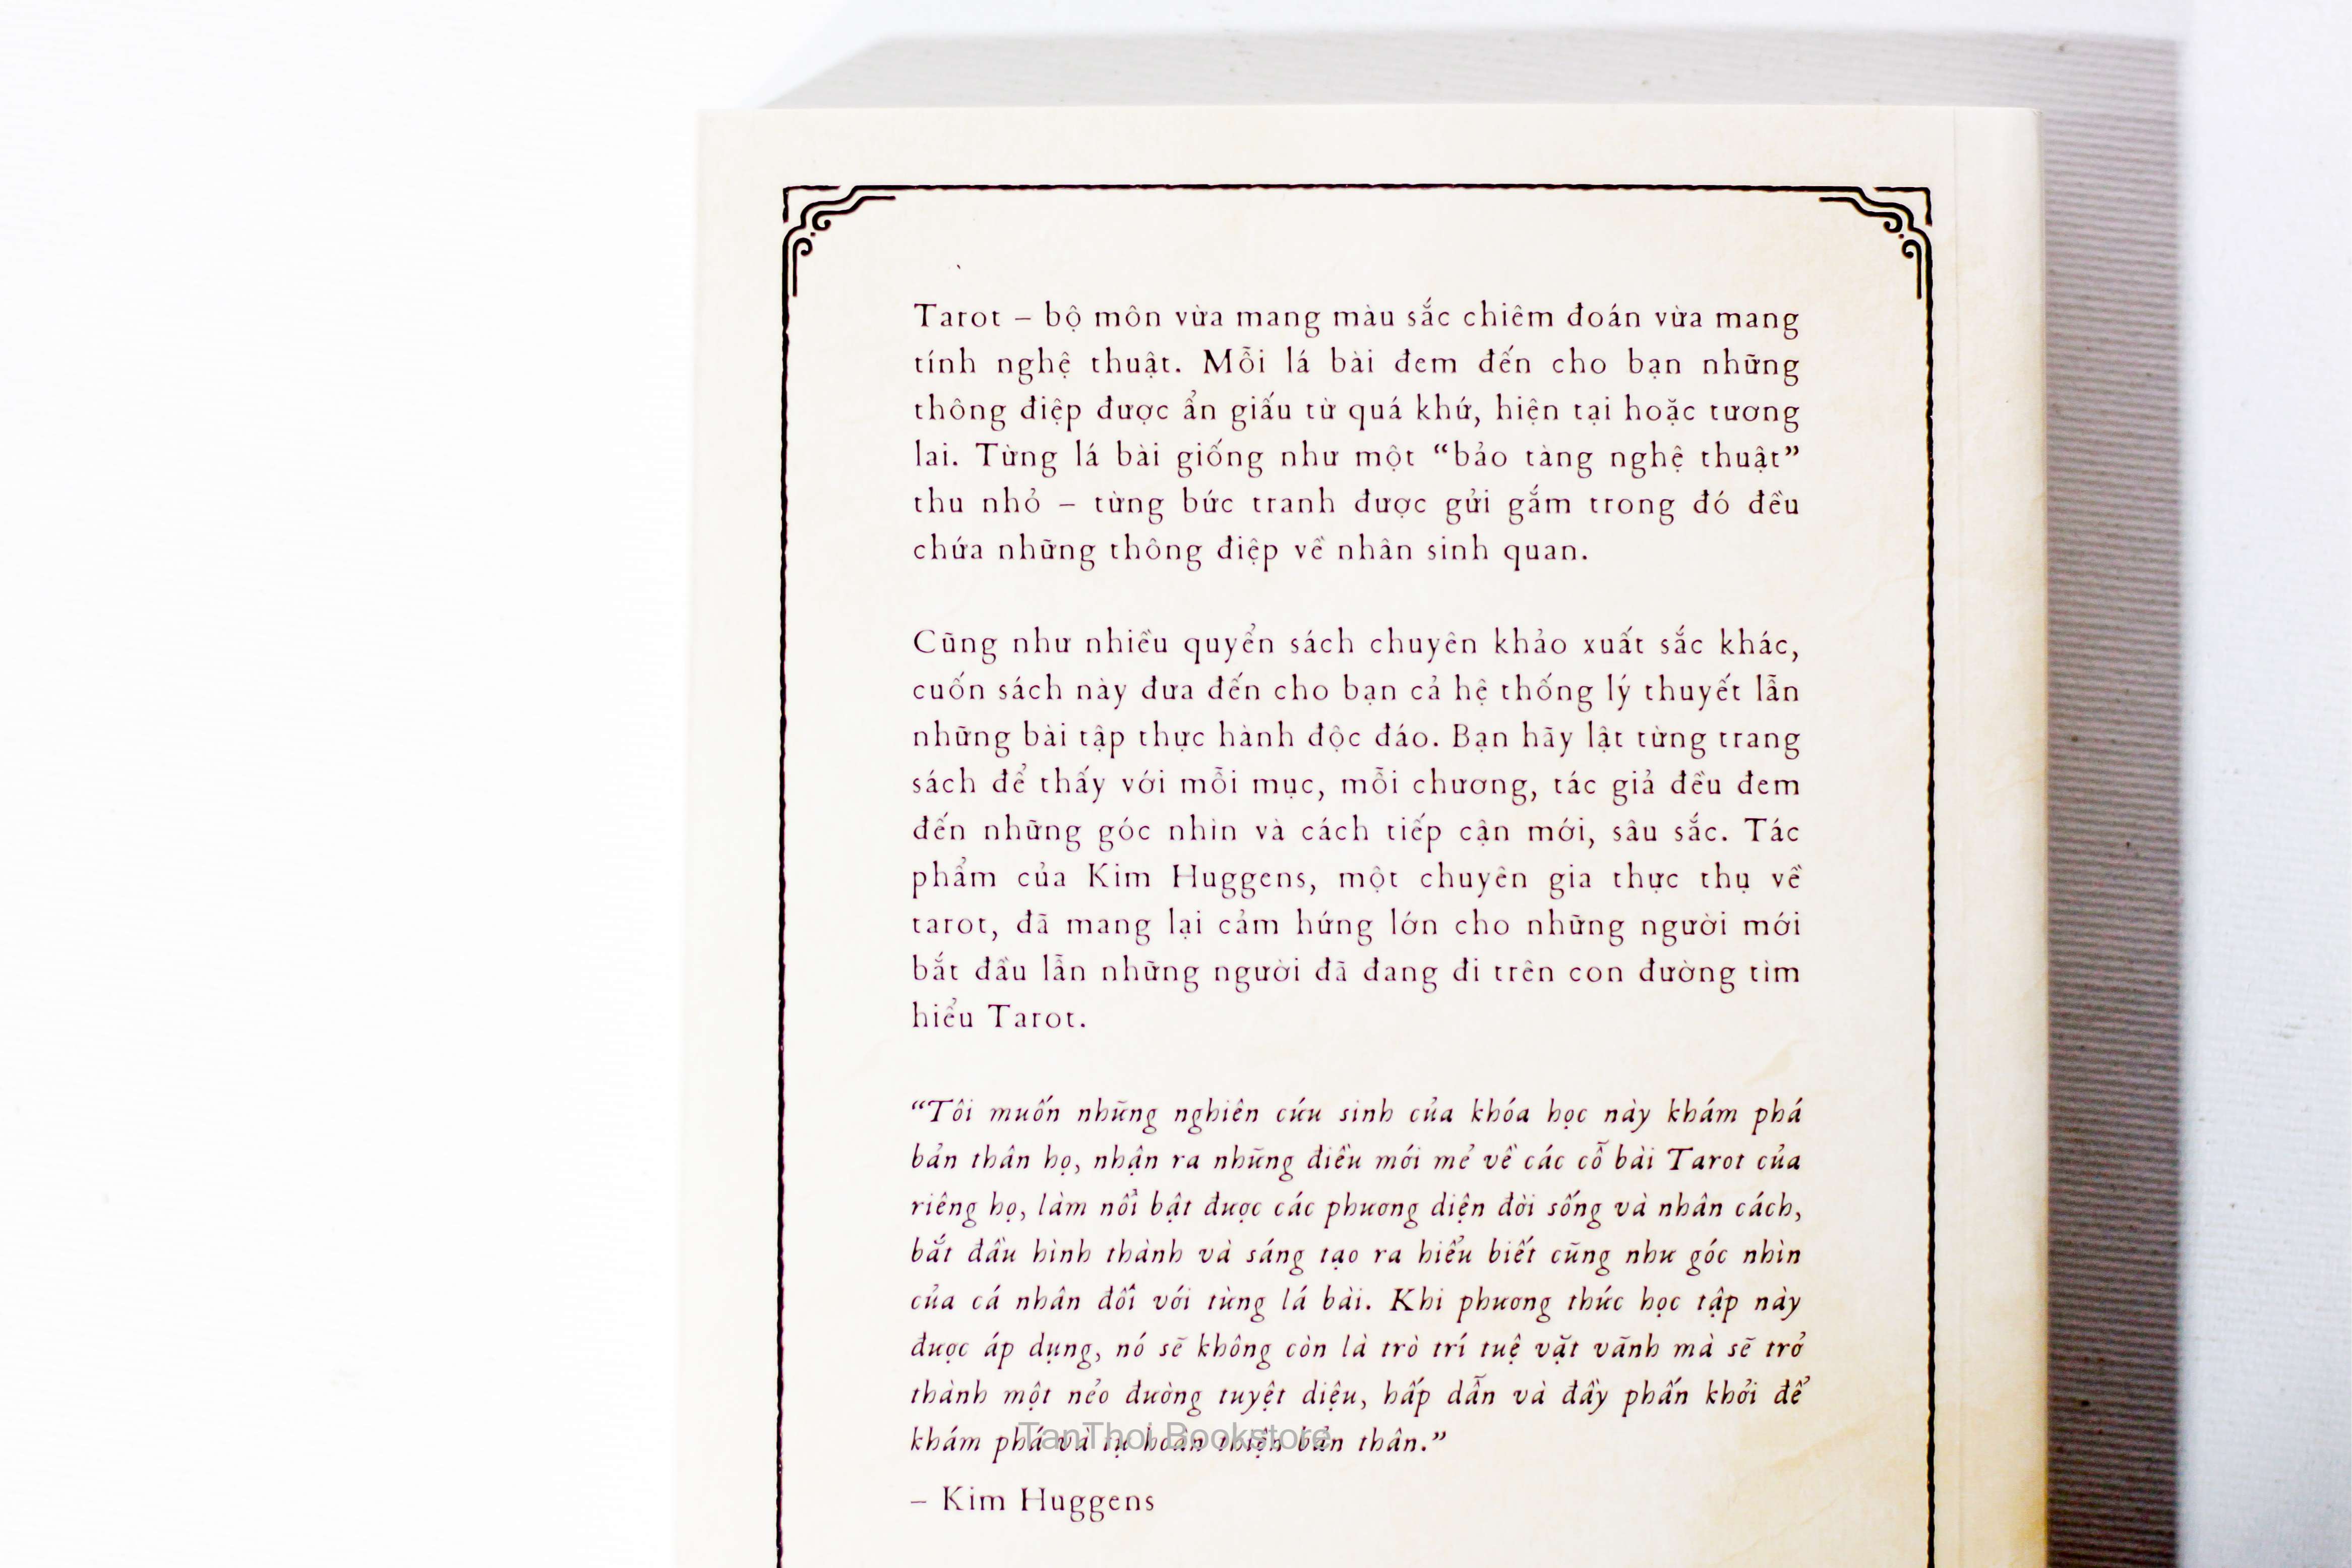 Tarot – bộ môn vừa mang màu sắc chiêm đoán vừa mang
tính nghệ thuật. Mỗi lá bài đem đến cho bạn những
thông điệp được ẩn giấu từ quá khứ, hiện tại hoặc tương
lai. Từng lá bài giống như một “bảo tàng nghệ thuật”
thu nhỏ – từng bức tranh được gửi gắm trong đó đều
chứa những thông điệp về nhân sinh quan.
Cũng như nhiều quyển sách chuyên khảo xuất sắc khác,
cuốn sách này đưa đến cho bạn cả hệ thống lý thuyết lẫn
những bài tập thực hành độc đáo. Bạn hãy lật từng trang
sách để thấy với mỗi mục, mỗi chương, tác giả đều đem
đến những góc nhìn và cách tiếp cận mới, sâu sắc. Tác
phẩm của Kim Huggens, một chuyên gia thực thụ về
tarot, đã mang lại cảm hứng lớn cho những người mới
bắt đầu lẫn những người đã đang đi trên con đường tìm
hiểu Tarot.
“Tôi muốn những nghiên cứu sinh của khóa học này khám phá
bản thân họ, nhận ra những điều mới mẻ về các cỗ bài Tarot của
riêng họ, làm nổi bật được các phương diện đời sống và nhân cách,
bắt đầu hình thành và sáng tạo ra hiểu biết cũng như góc nhìn
của cá nhân đối với từng lá bài. Khi phương thức học tập này
được áp dụng, nó sẽ không còn là trò trí tuệ vặt vãnh mà sẽ trở
thành một nẻo đường tuyệt diệu, hấp dẫn và đầy phấn khởi để
khám phá và tự hoàn thiện bản thân.”
TanThoi Bookstore
– Kim Huggens